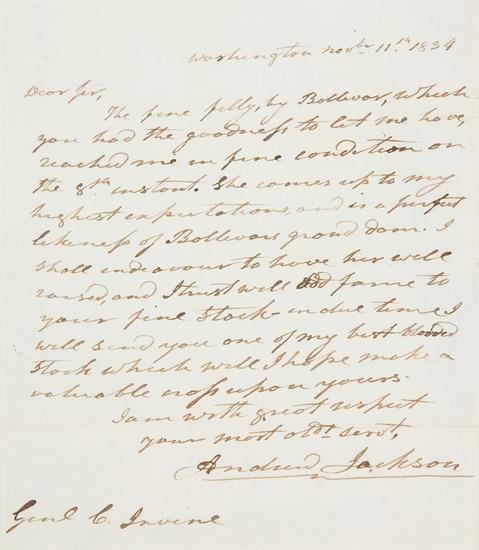 Washington Novbr 11.th 1834
Dear Sir,
The fine filly, by Bollevar, which
you had the goodness to let me have,
reached me in fine condition on
the 8th instant. She comes up to my
highest expectations, and is a perfect
likeness of Bollevars grand dam. I
shall endeavour to have her well
raised, and I trust will add fame to
your fine stock - in due time I
will send you one of my best blooded
stock which will I hope make a
valuable cross upon yours.
I am with great respect
your most obdt servt,
Andrew Jackson
Genl C. Irvine